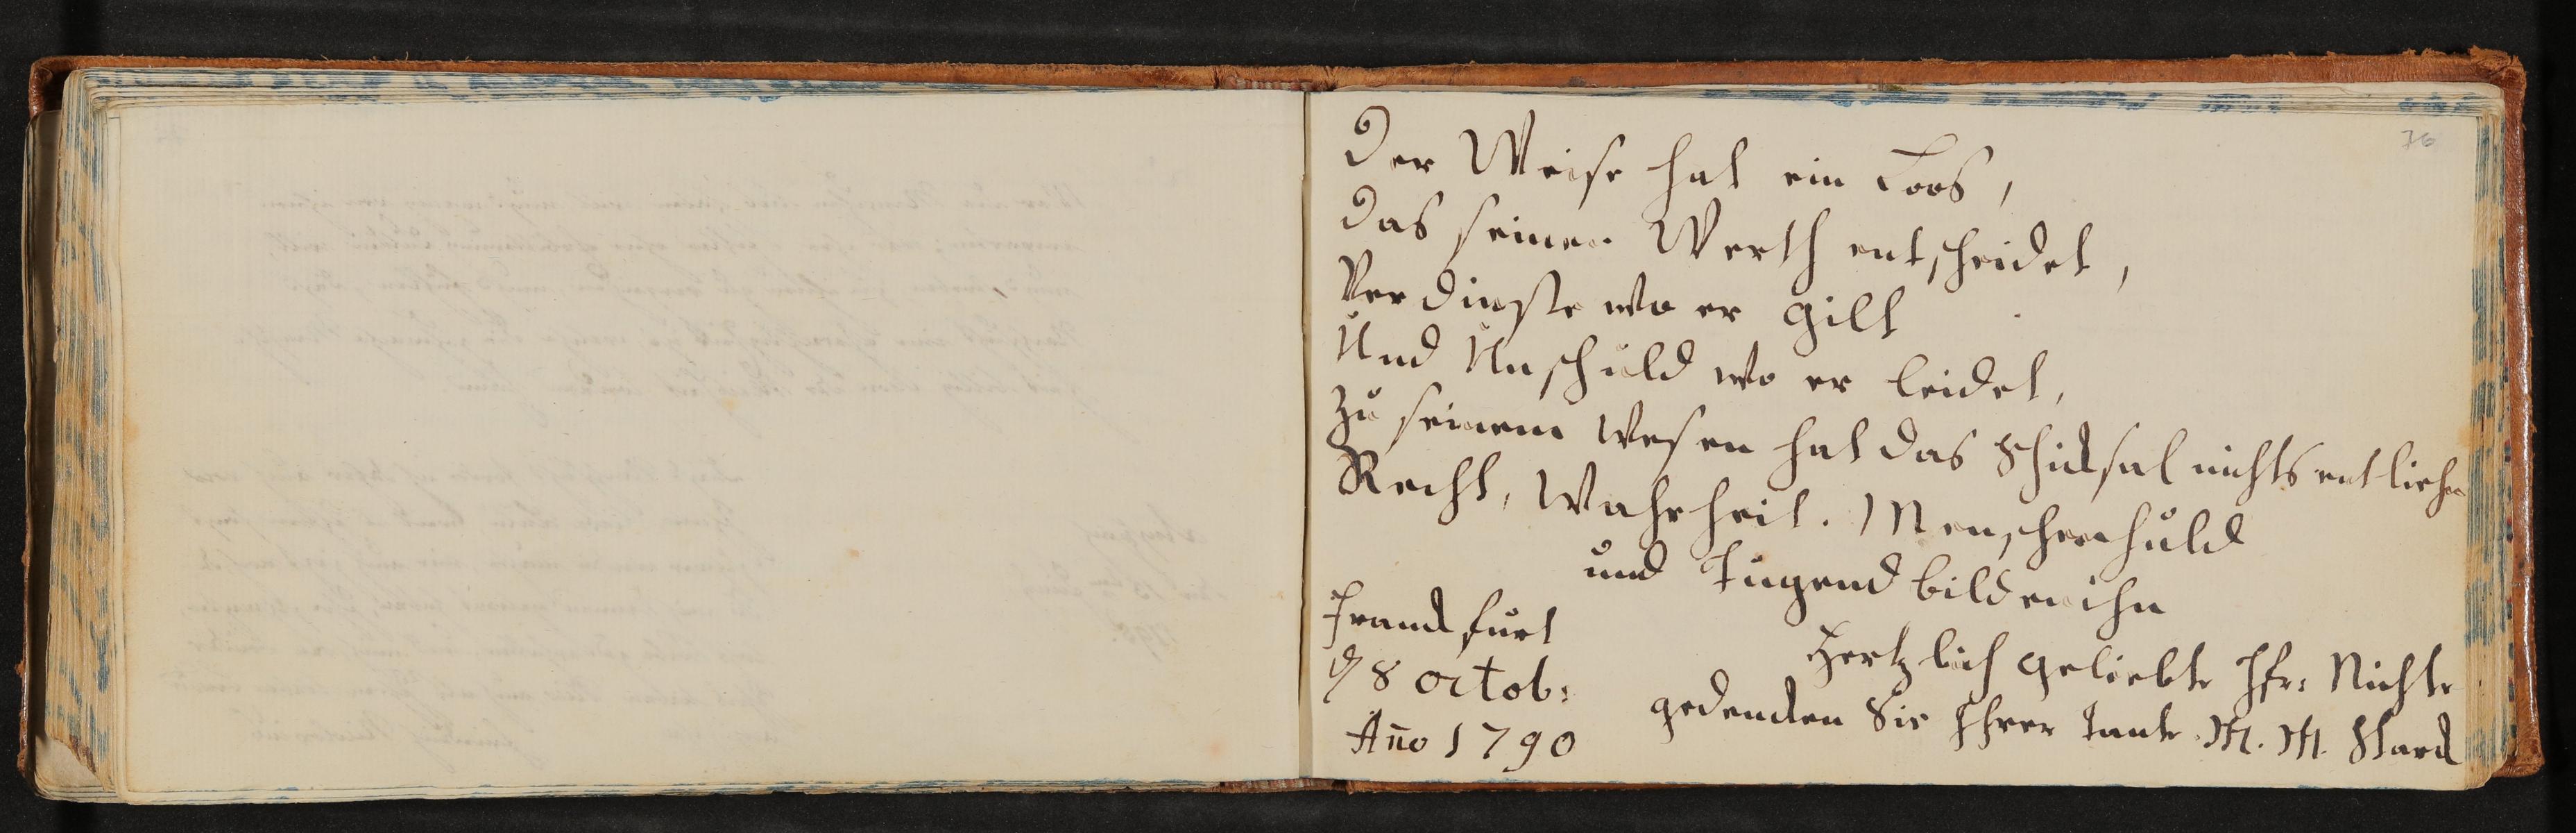 76
Der Weise hat ein Loos,
das seinen Werth entscheidet,
Verdinste wo er gilt
Und Unschuld wo er leidet,
zu seinem Wesen hat das Schicksal nichts entliehn
Recht, Wahrheit. Menschenhuld
und Tugend bilden ihn
Franckfurt
d 8 octob:
Año 1790
Hertzlich geliebte Jfr: Nichte
gedencken Sie Ihrer Tante M. M. Starck